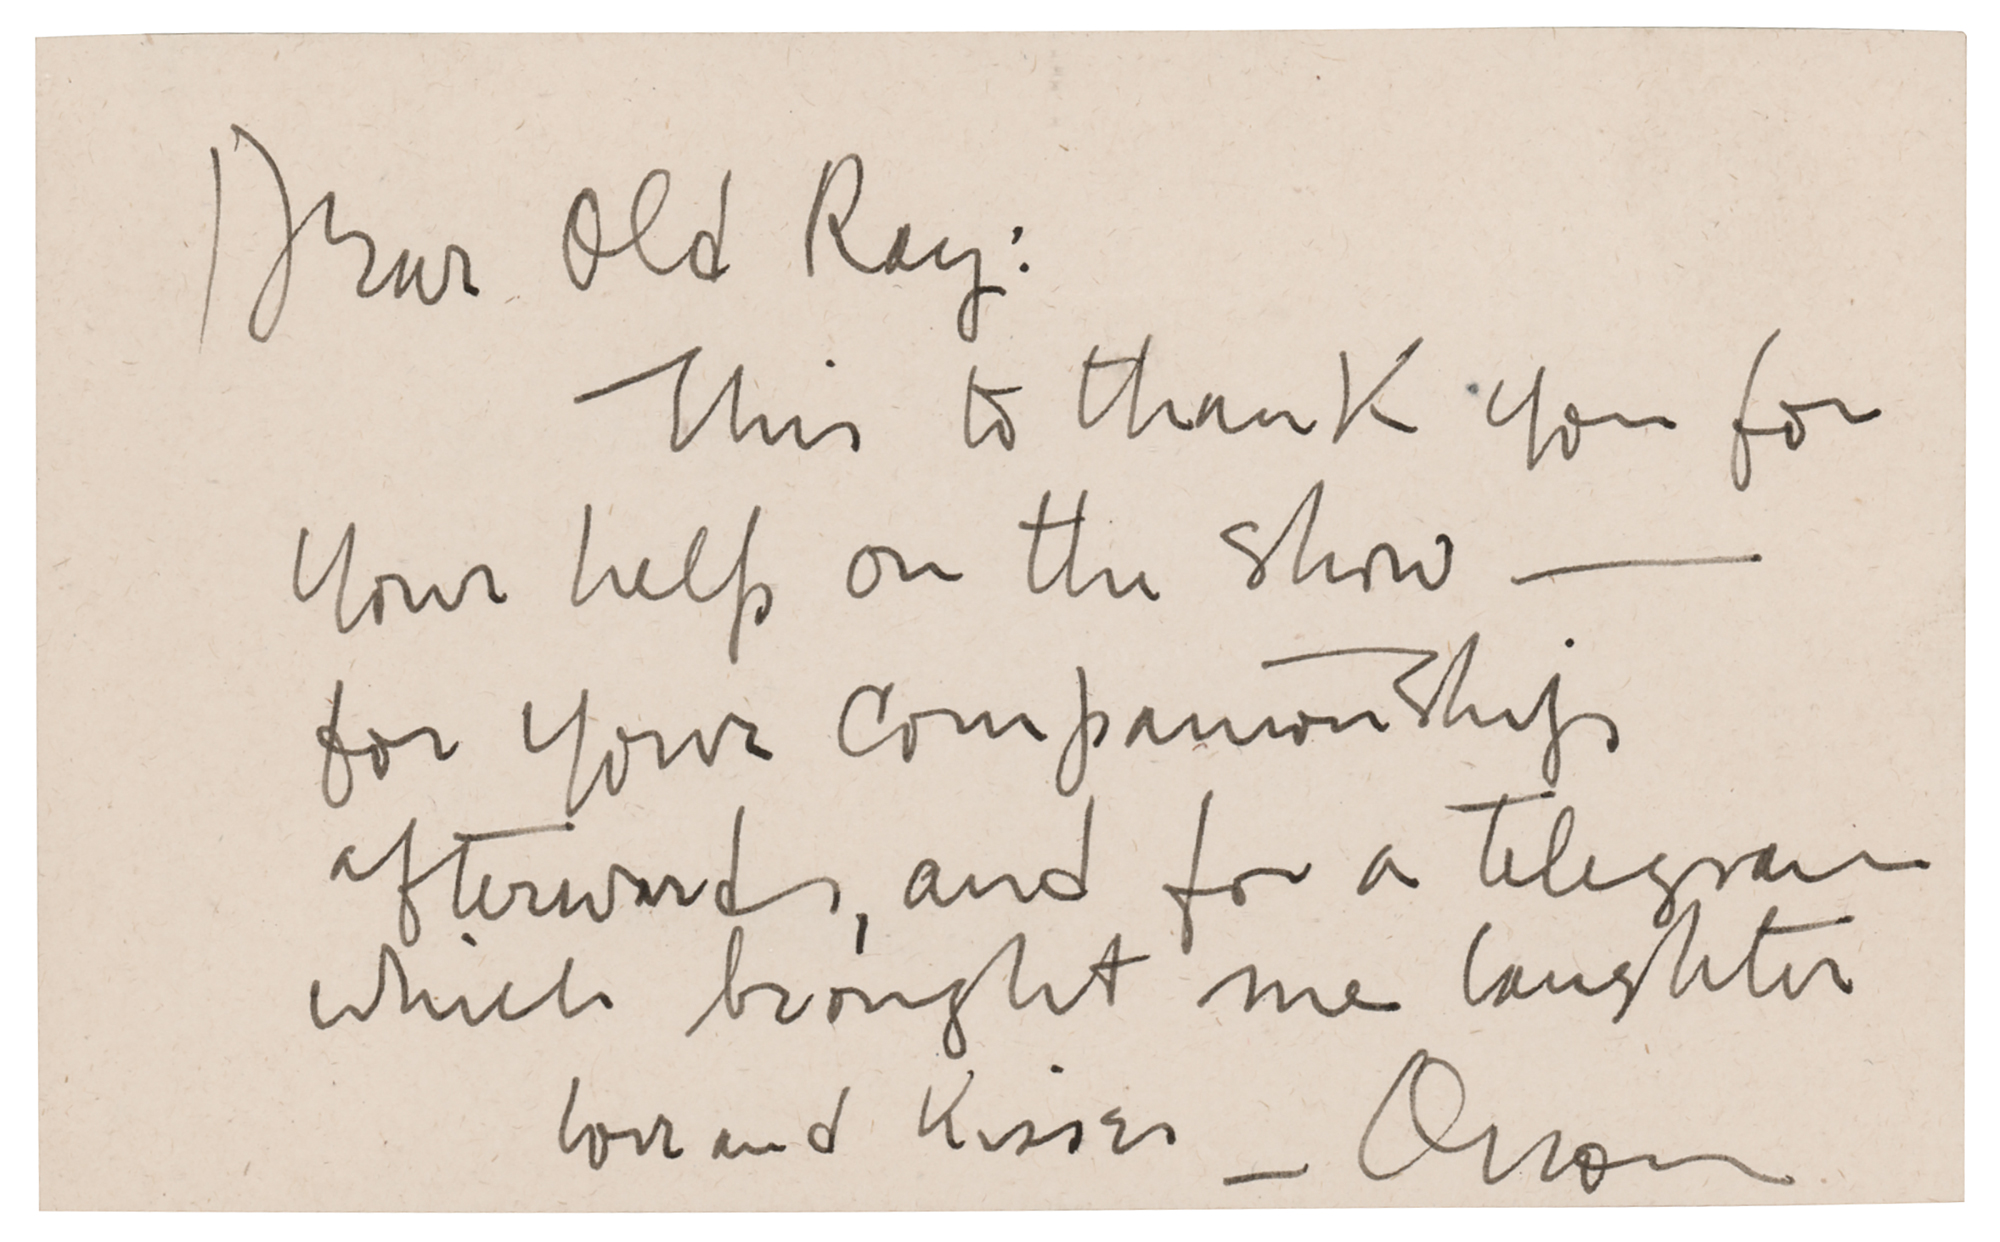 Dear Old Ray:
This to thank you for
your help on the show —
for your companionships
afterwards, and for a telegram
which brought me laughter
love and kisses — Orson